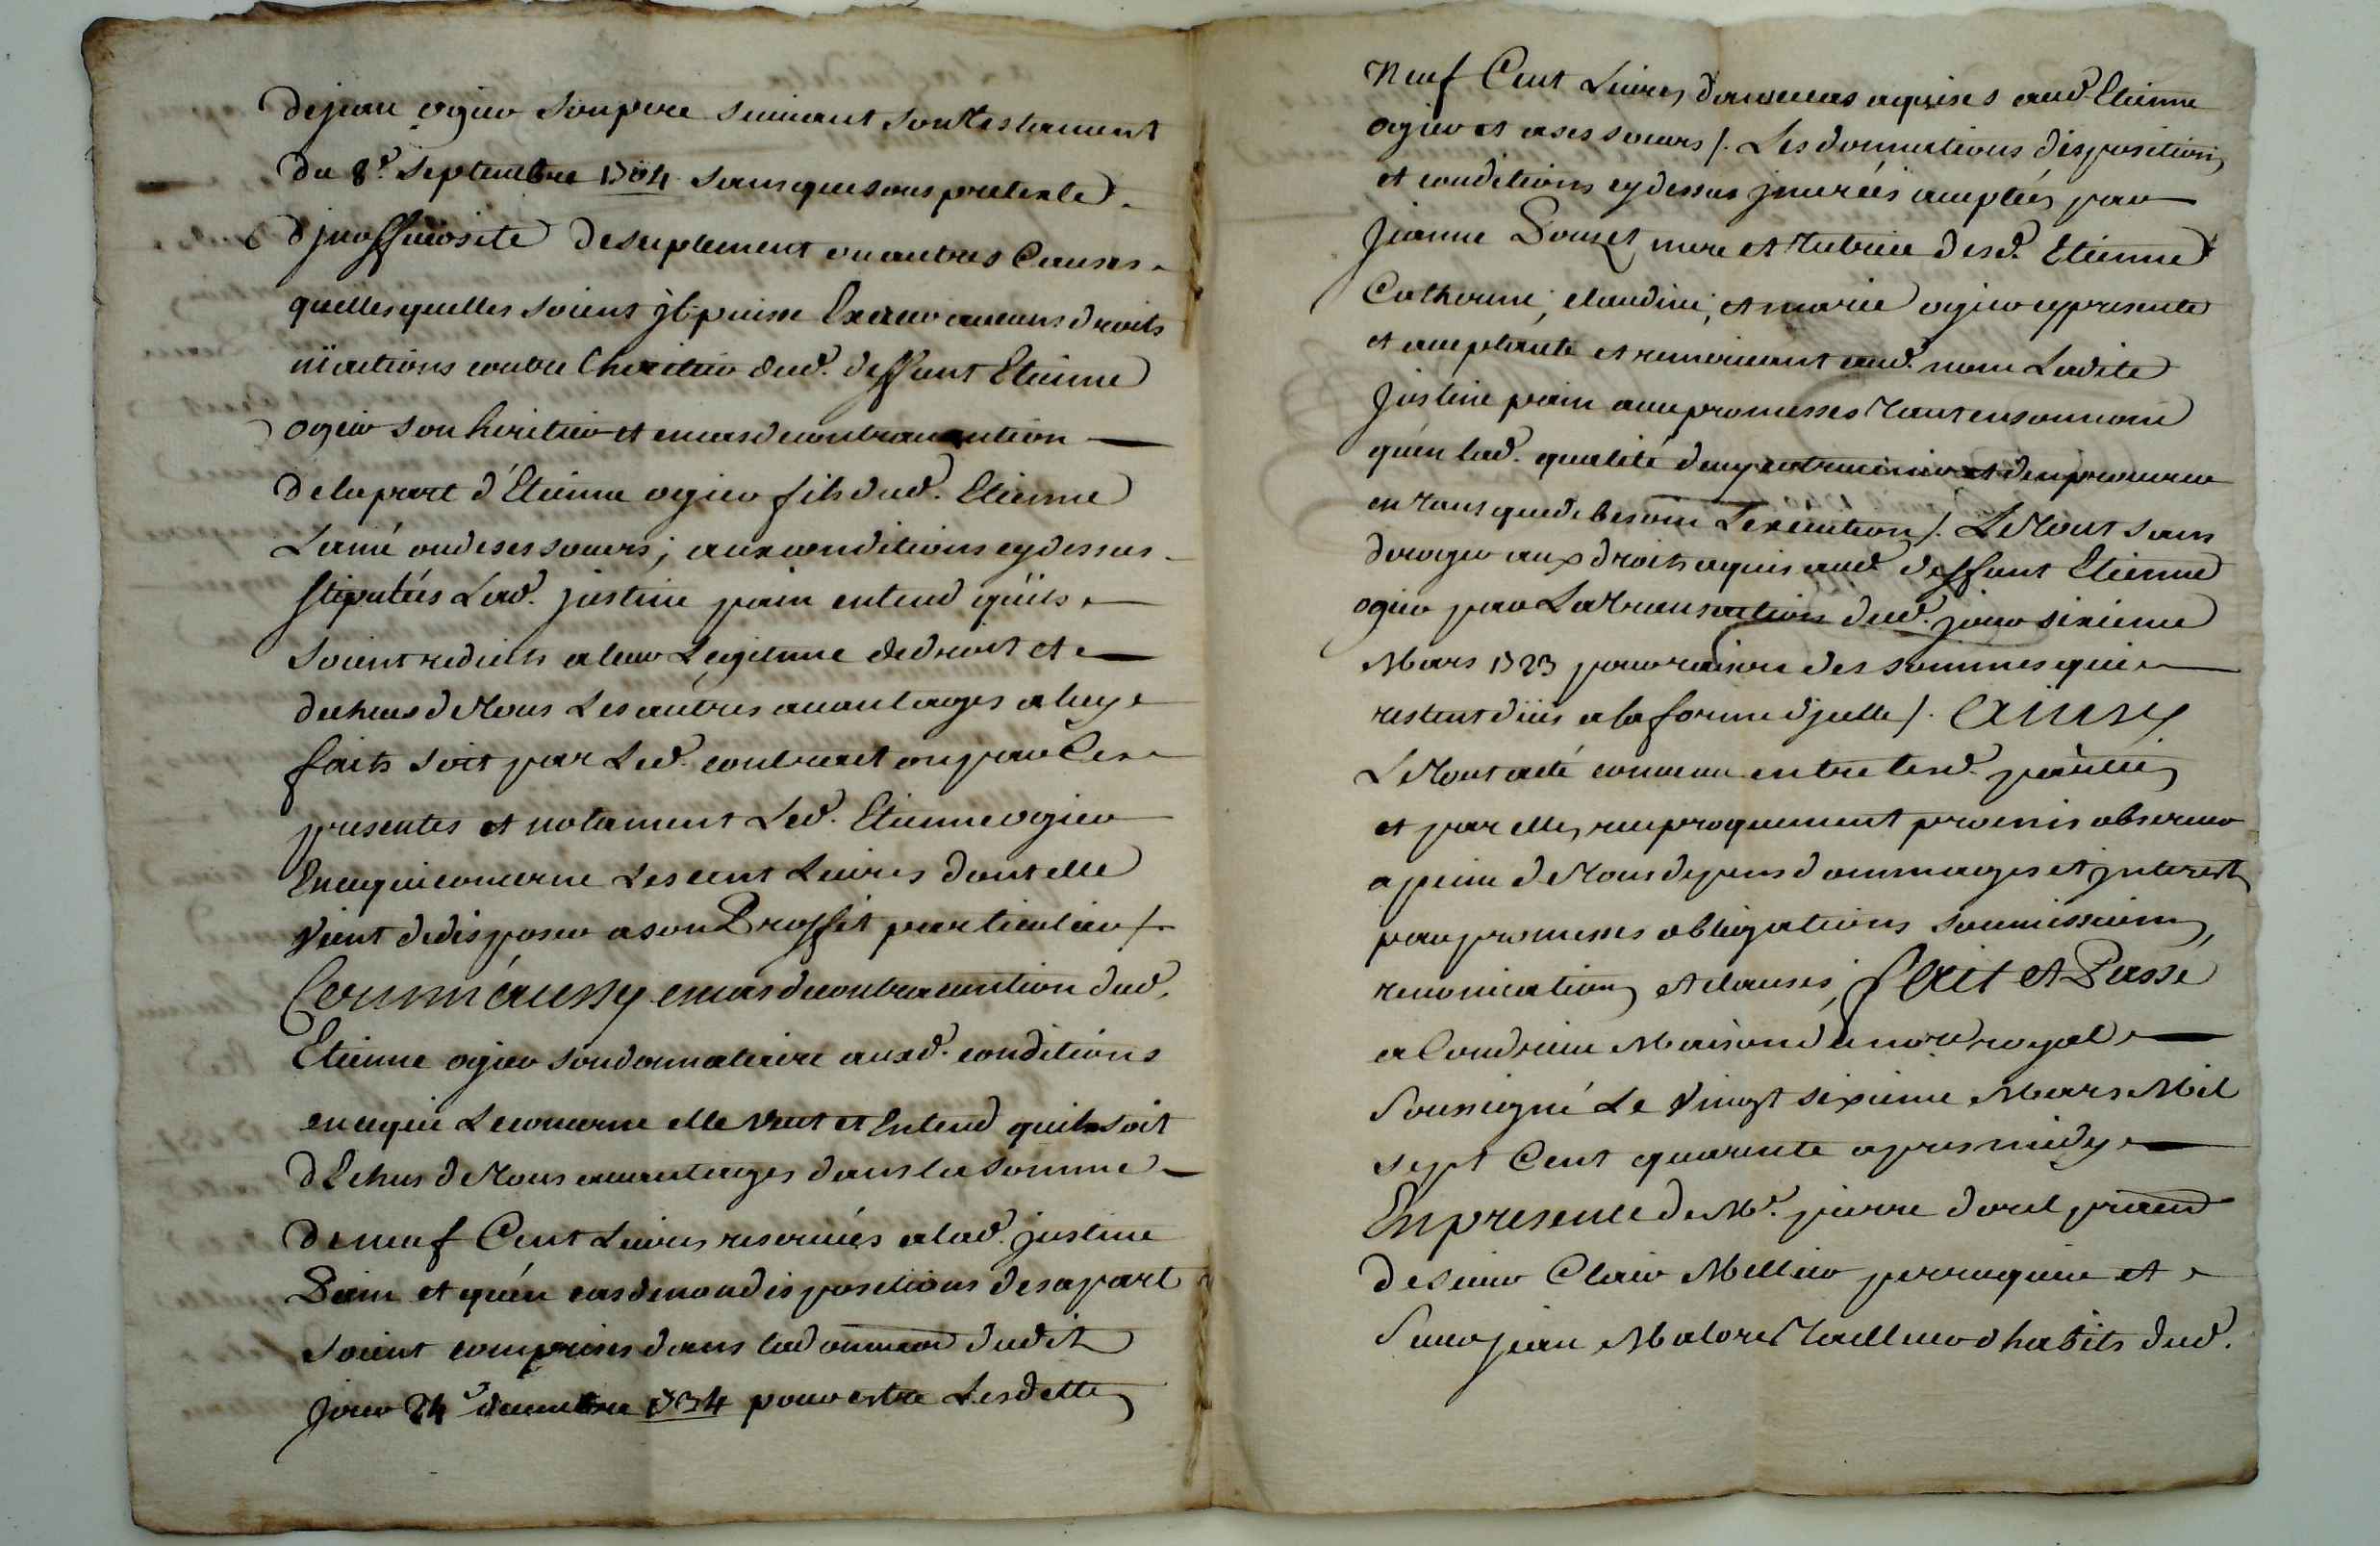 de jean ogier son pere suiuant son testament
du 8e. septembre 1704 sans que sous pretexte
d'jnofficiosité de suplement ou autres Causes
quelles quelles soient jl puisse Exercer aucuns droits
ni actions contre l'heritier dud. deffunt Etienne
ogier son heritier et en cas de contrauention
de la part d'Etienne ogier fils dud. Etienne
L'ainé ou de ses soeurs; aux conditions cy dessus
stipulées Lad. justine pain entend quils
soient reduits a leur Legitime de droit et
dechus de tous Les autres auantages a luy
faits soit par Led. contract ou par Ces
presentes et notament Led. Etienne ogier
En ce qui concerne Les cent Liures dont elle
vient de disposer a son Proffit particulier /.
Comm'aussy en cas de contrauention dud.
Etienne ogier son donnataire auxd. conditions
en ce qui Le concerne elle veut et Entend quil soit
dEchus de tous auantages dans la somme
de neuf Cent Liures reseruées a lad. justine
Pain et qu'en cas de non dispositions de sa part
soient comprises dans la donnaon dudit
jour 24e decembre 1734 pour estre Lesdettes
neuf Cent Liures acquises aud. Etienne
ogier et a ses soeurs /. Les donnations dispositions
et conditions cy dessus jnserées acceptées par
jeanne Douzet mere et tutrice desd. Etienne
Catherine, claudine, et marie ogier cy presente
et acceptante et remerciant aud. nom Ladite
justine pain auec promesses tant en son nom
qu'en lad. qualité d'en procurer
en tant que de besoin L'execution /. Le tout sans
deroger aux droits acquis aud. deffunt Etienne
ogier par La transaction dud. jour sixieme
Mars 1723 pour raison des sommes qui
restent düs a la forme d'jcelle /. Ainsy
Le tout acté conuenu entre lesd. parties
et par elles reciproquement promis obseruer
a peine de tous depens dommages et jnterests
par promesses obligations soumissions,
renonciations et clauses, fait et Passé
a Condrieu Maison du notre royal
soussigné Le vingt sixieme Mars Mil
sept Cent quarente apres midy
En presence de Me. pierre dorel praticien
de sieur Clair Mellier perruquier et
sieur jean Malore tailleur d'habits dud.